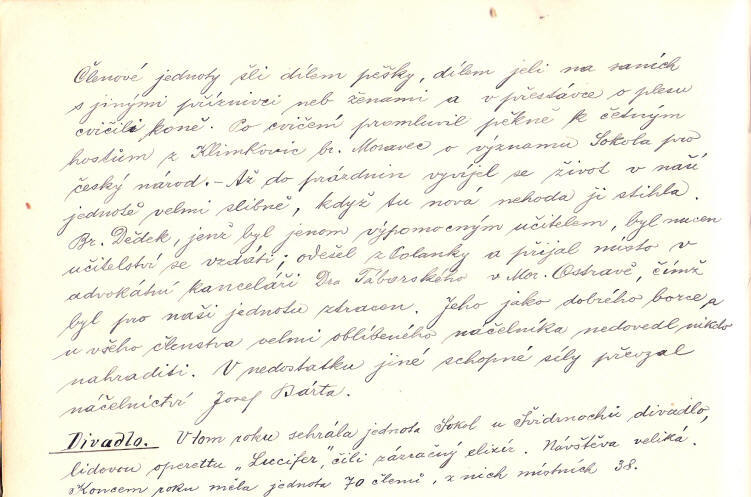 Členové jednoty šli dílem pěšky, dílem jeli na saních
s jinými příznivci neb ženami a v přestávce o plesu
cvičili koně. Po cvičení promluvil pěkně k četným
hostům z Klimkovic br. Moravec o významu Sokola pro
český národ. – Až do prázdnin vyvíjel se život v naší
jednotě velmi slibně, když tu nová nehoda ji stihla.
Br. Dědek, jenž byl jenom výpomocným učitelem, byl nucen
učitelství se vzdáti; odešel z Polanky a přijal místo v
advokátní kanceláři Dra Táborského v Mor. Ostravě, čímž
byl pro naši jednotu ztracen. Jeho jako dobrého borce a
u všeho členstva velmi oblíbeného náčelníka nedovedl nikdo
nahraditi. V nedostatku jiné schopné síly převzal
náčelnictví Josef Bárta.
Divadlo. V tom roku sehrála jednota Sokol u Švidrnochů divadlo,
lidovou operettu „Luccifer", čili zázračný elixír. Návštěva veliká.
Koncem roku měla jednota 70 členů, z nich místních 38.